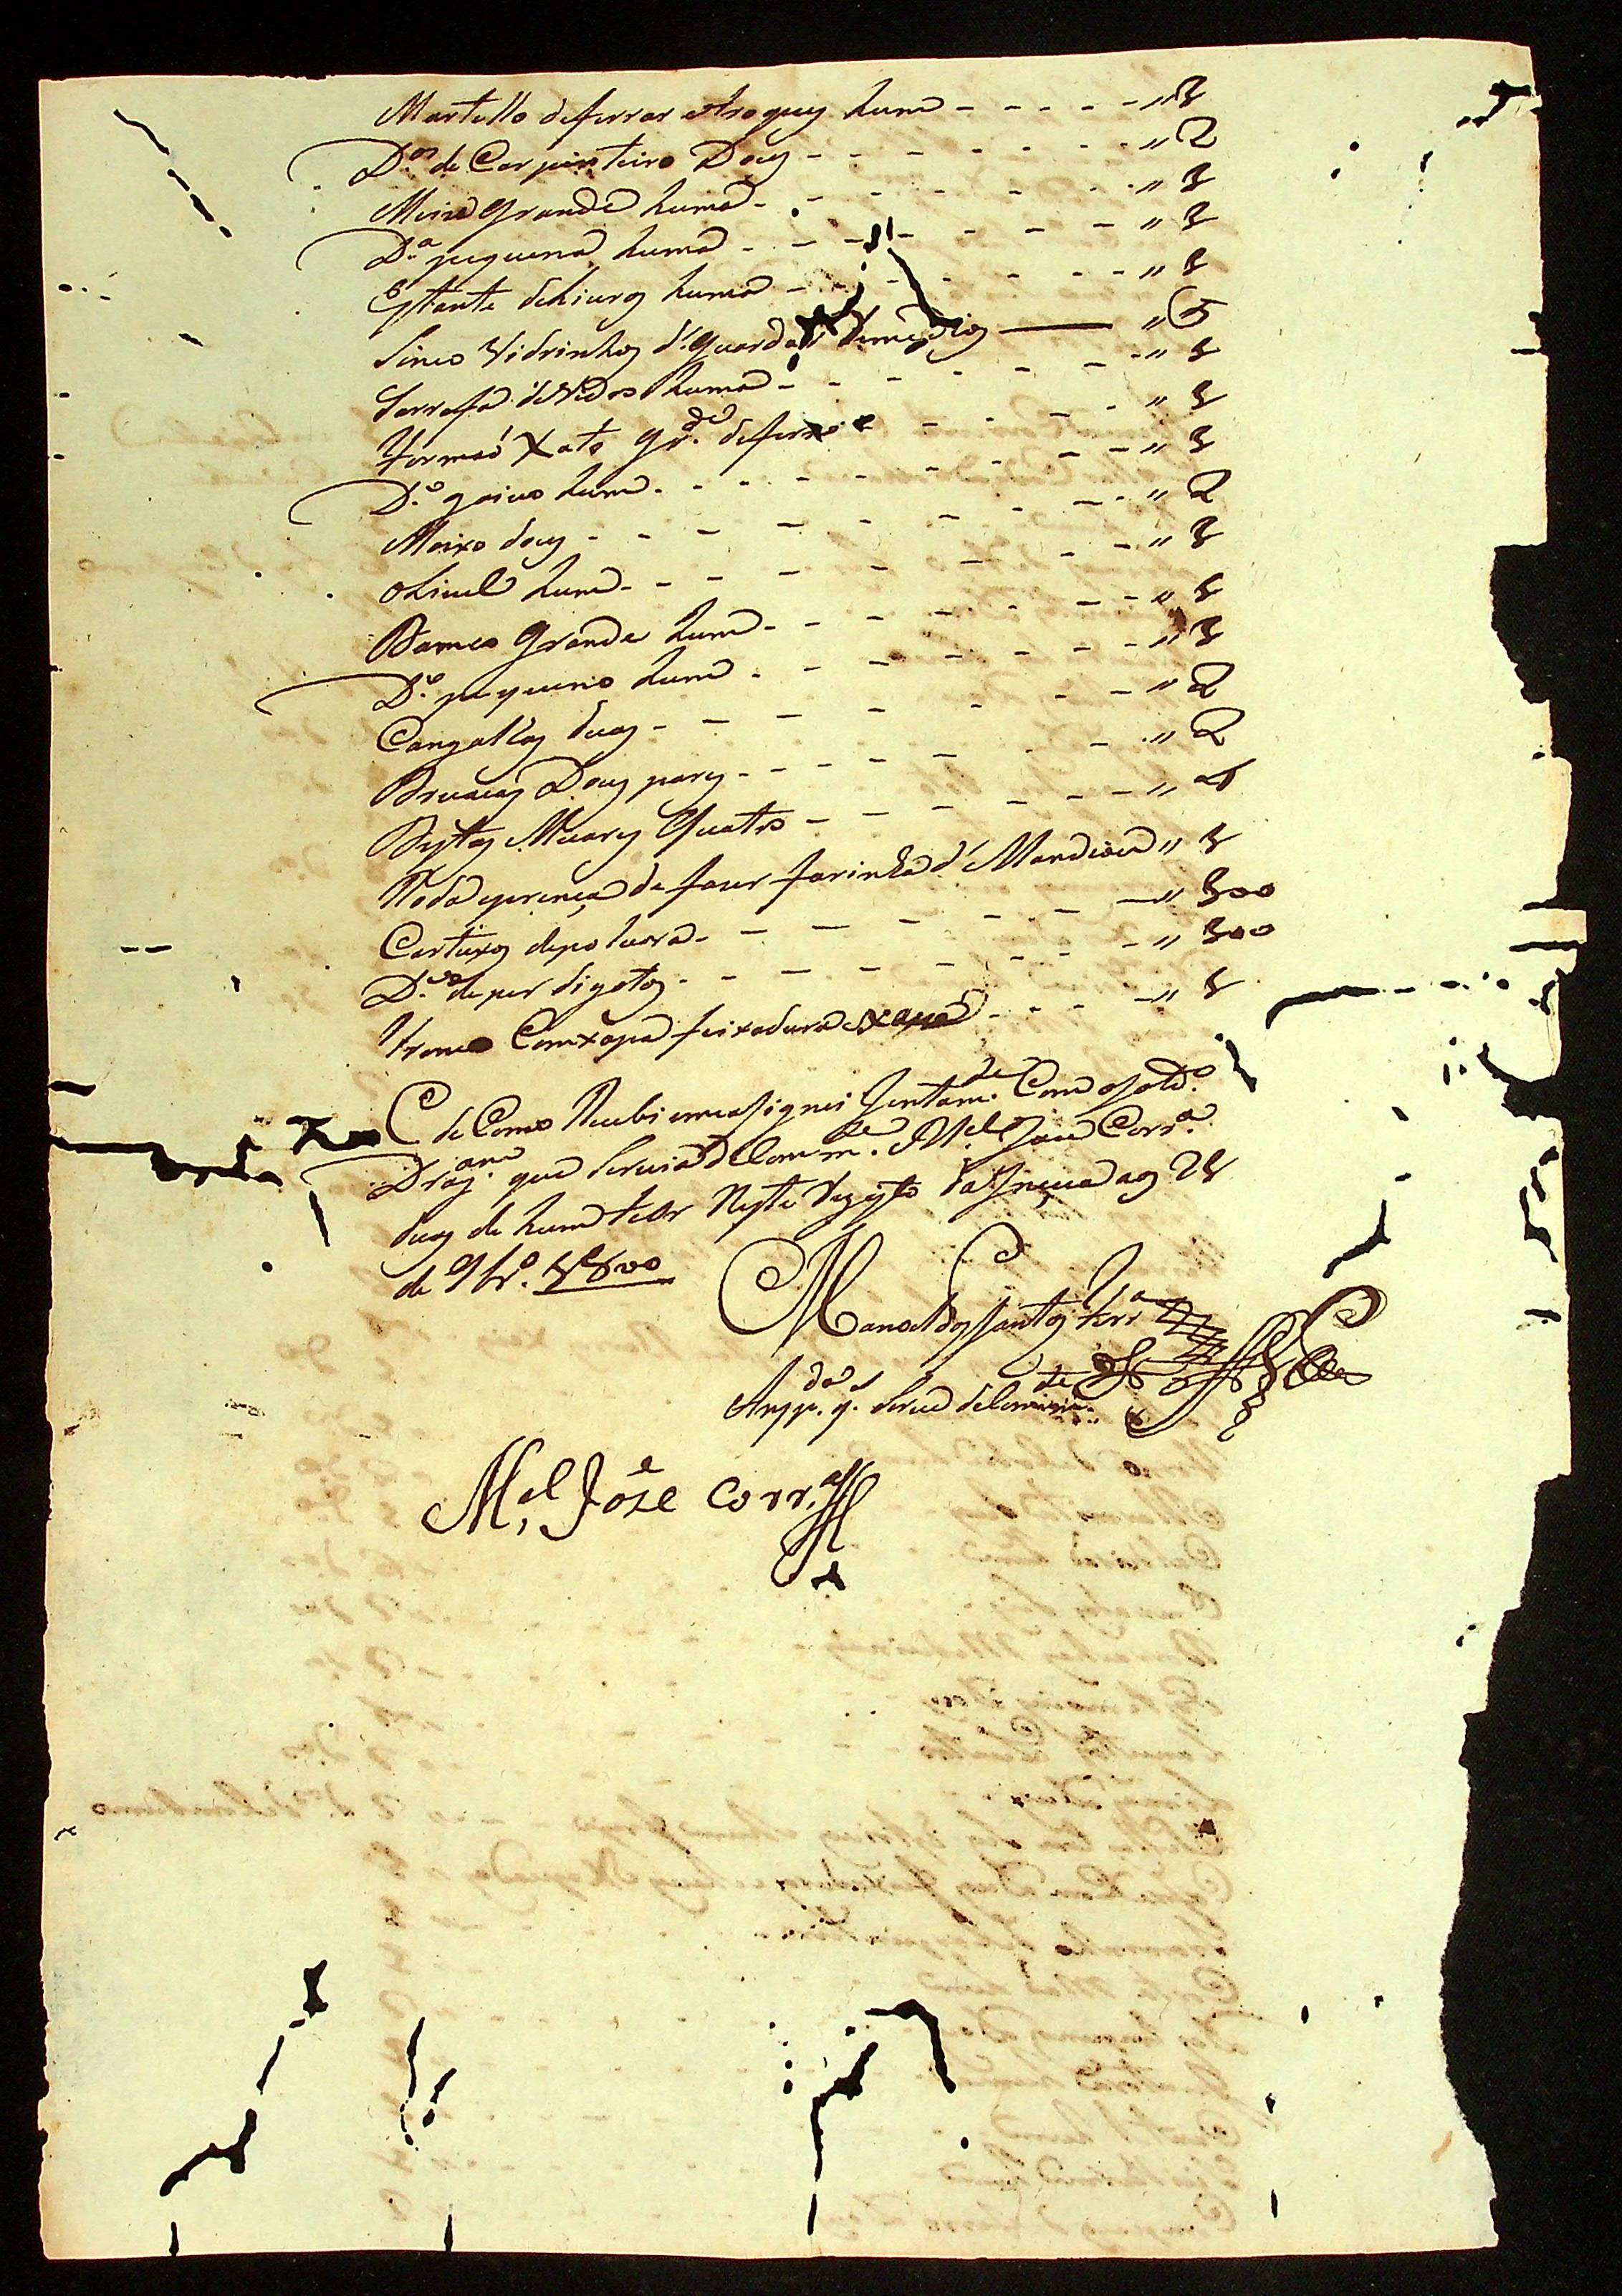 Martello de ferrar e troques hum - - - - - " 1
D.os de Carpinteiro Dous - - - - - - - - " 2
Meza Grande huma - - - - - - - - " 1
D.a pequena huma - - - - - - - " 1
Estante de Livros huma - - - - - - - - " 1
Sinco Vidrinhos d'guardar Remedios —— " 5
Garrafa de Vidro huma - - - - - - - " 1
Formaõ Xato gr.de de ferro - - - - " 1
D.o goivo hum - - - - - - - - " 1
Maixo dous - - - - - - - - " 2
Nivel hum - - - - - - - - " 1
Banco Grande hum - - - - - - - " 1
D.o pequeno hum - - - - - - - " 1
Cangalhas duas - - - - - - - " 2
Bruacas Dous pares - - - - - - - " 2
Bestas Muares Quatro - - - - - - " 4
Roda e prença de fazer farinha d'Mandioca " 1
Cartuxos de polvora - - - - - - " 100
D.os de perdigotos - - - - - - - - " 100
Tronco Com xapa feixadura e xave - - - - " 1
E de Como Recebi em casignei Juntam.te Com o sold.o
Drag.am que servia d Comm.de M.el Joze Corr.a
duas de hum teor Neste Rezisto da Ineuca aos 21
de 9br.o 1800
Manoel dos Santos Frr.a
Ansp.da q. serve de Comm.de
M.el Joze Corr.a